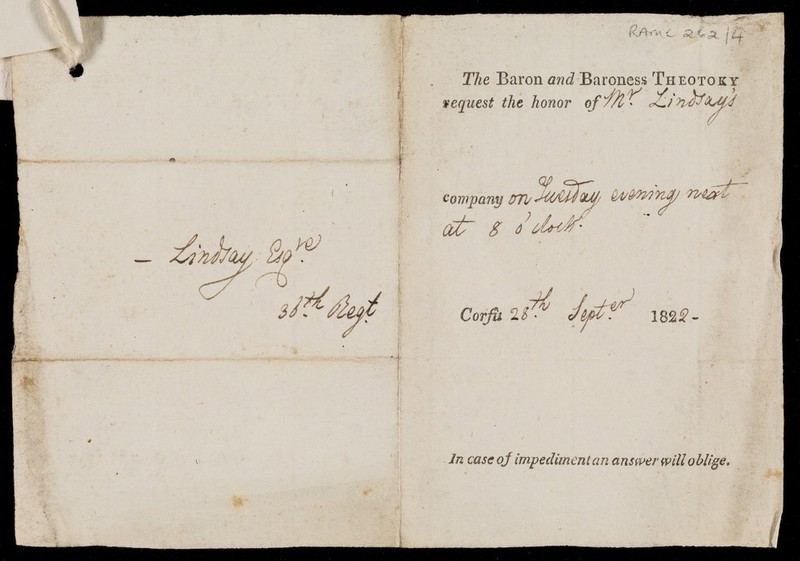 RAMC 262/4
The Baron and Baroness THEOTOKY
request the honor of Mr. Lindsay's
company on Tuesday evening next
at 8 o'clock.
Corfu 28th. Septer. 1822-
In case of impediment an answer will oblige.
- Lindsay Esqre.
36th. Regt